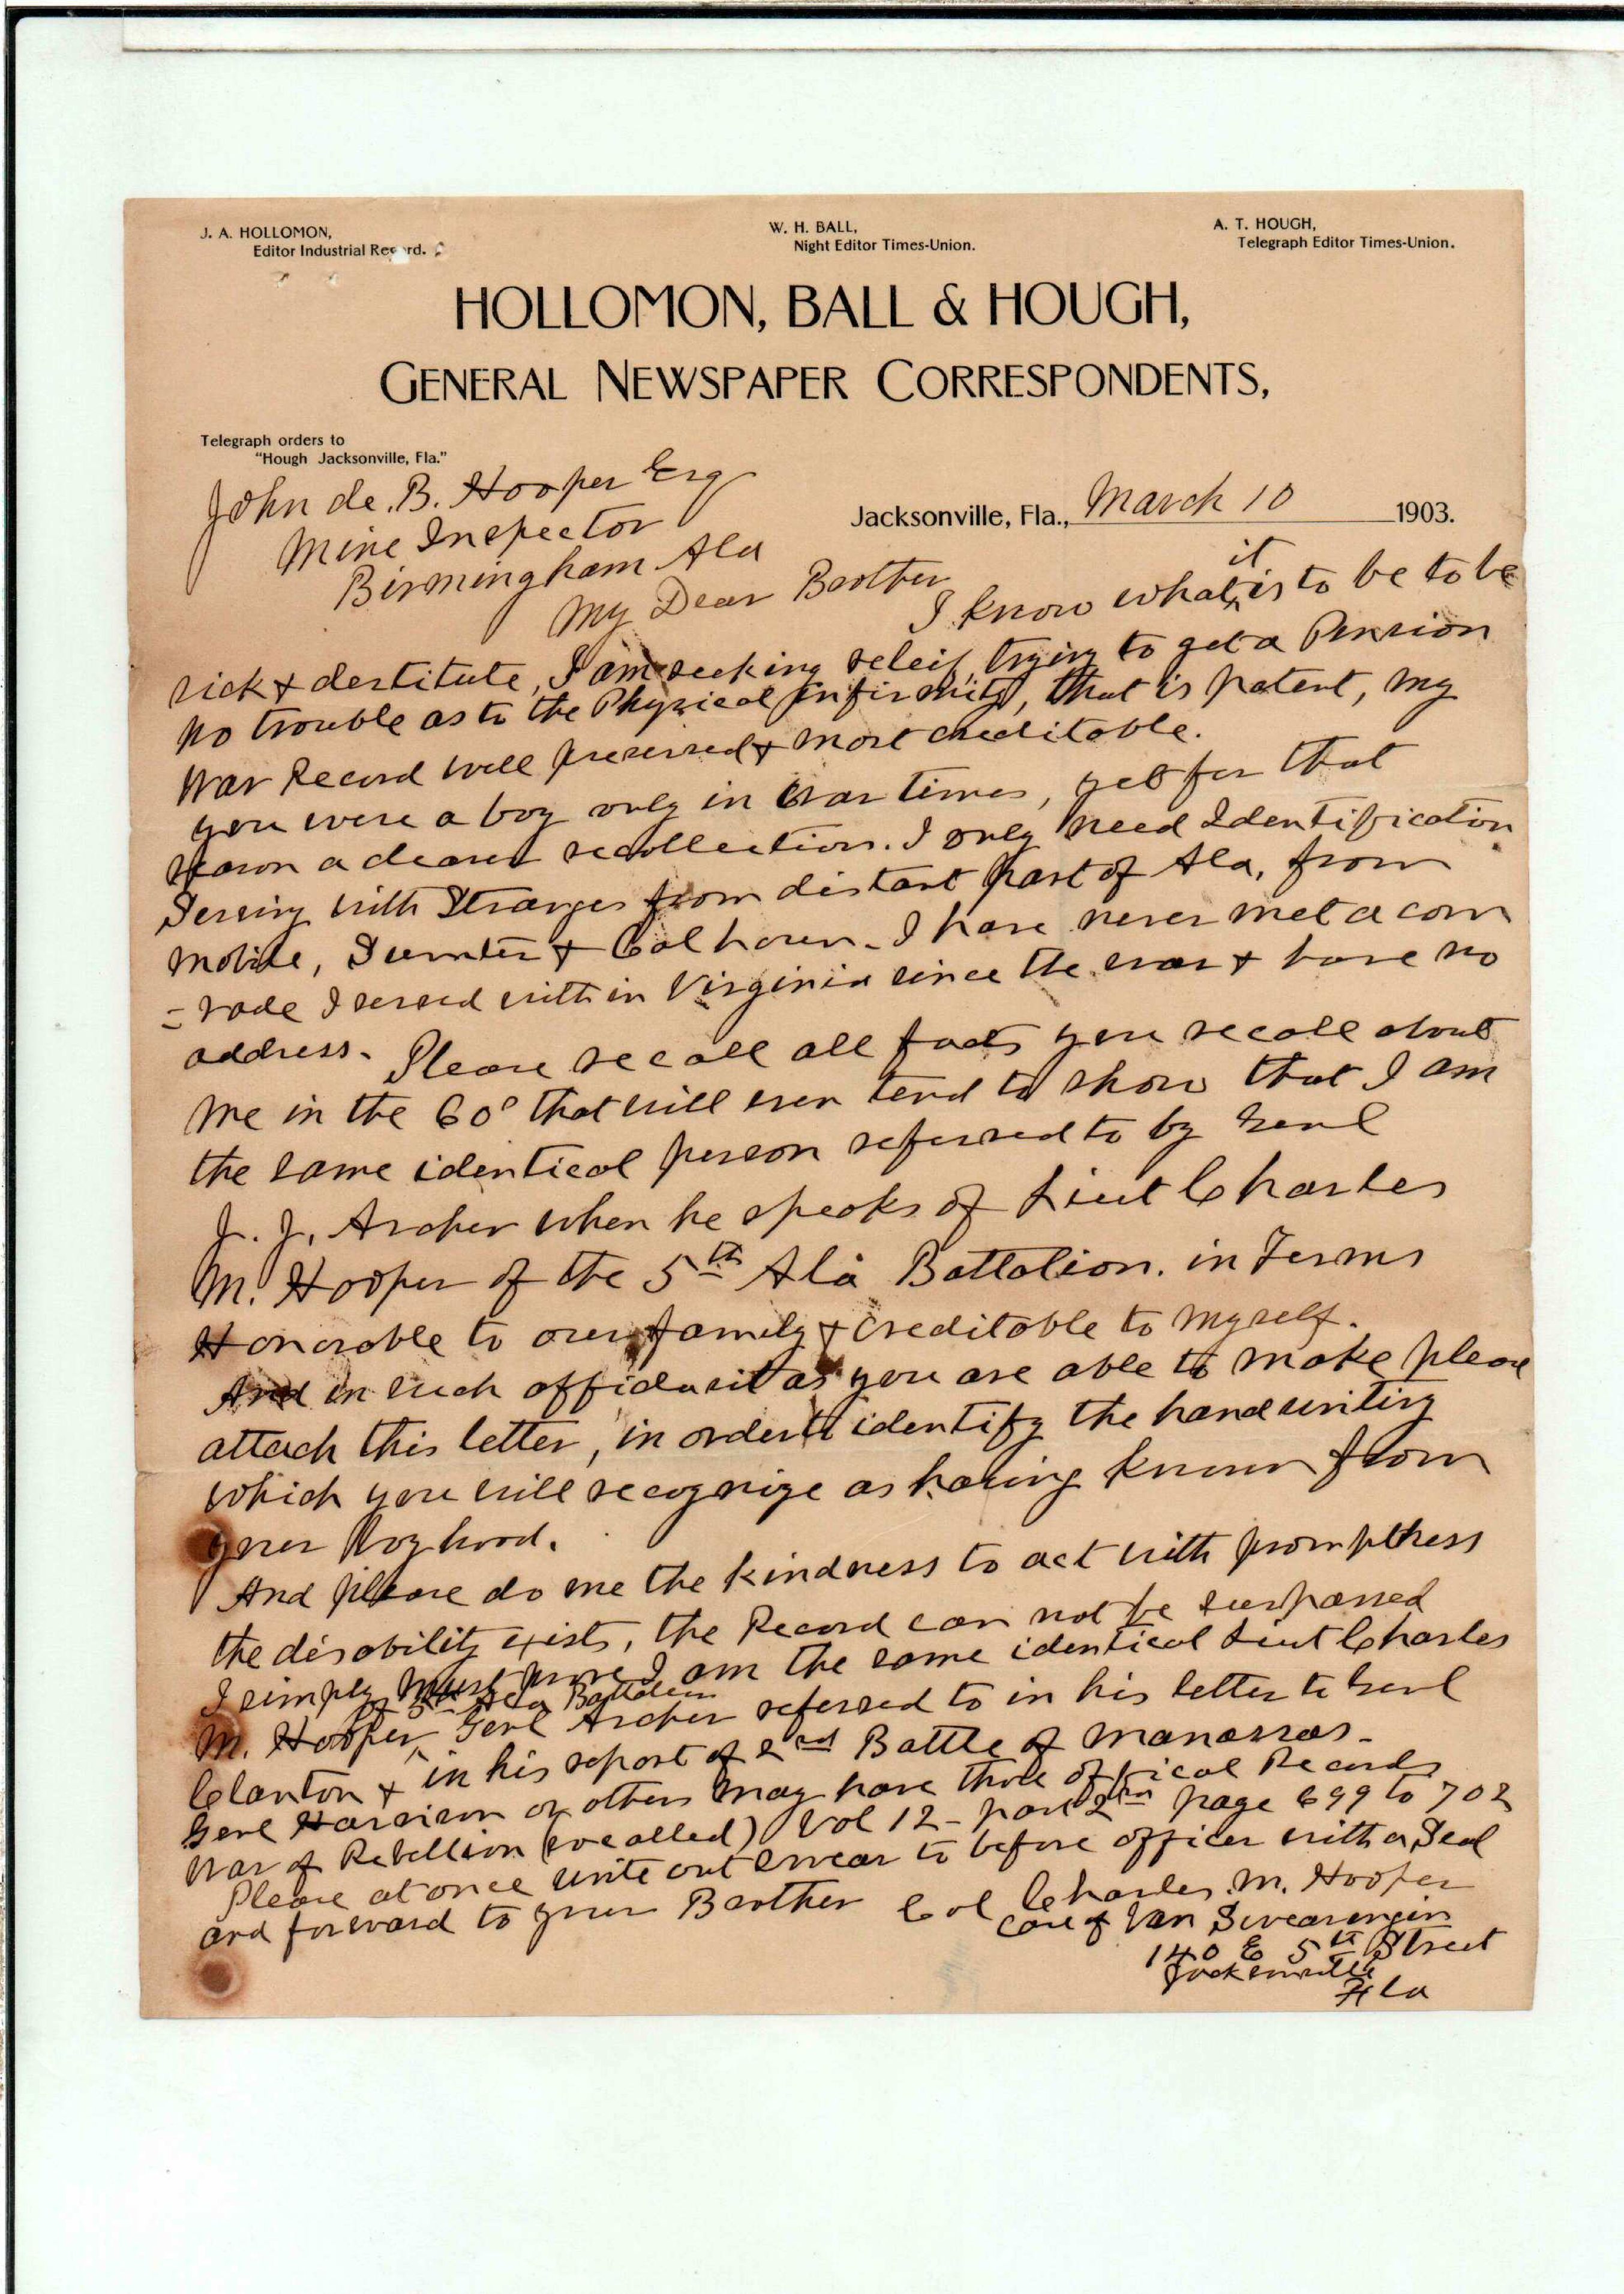 J. A. HOLLOMON,
Editor Industrial Record.
W. H. BALL,
Night Editor Times-Union.
A. T. HOUGH,
Telegraph Editor Times-Union.
HOLLOMON, BALL & HOUGH,
GENERAL NEWSPAPER CORRESPONDENTS,
Telegraph orders to
"Hough Jacksonville, Fla."
John de. B. Hooper Esq
Mine Inspector
Birmingham Ala
Jacksonville, Fla., March 10 1903.
My Dear Brother
I know what it is to be to be
sick & destitute, I am seeking releif, trying to get a Pension
no trouble as to the Physical infirmity, that is patent, my
War Record well preserved & most creditable.
you were a boy only in War times, yet for that
reason a clearer recollection. I only need Identification
Serving with Stranges from distant part of Ala, from
Mobile, Sumter & Calhoun - I have never met a com
= rade I served with in Virginia since the war & have no
address. Please recall all facts you recall about
me in the 60s that will even tend to show that I am
the same identical person referred to by Genl
J. J. Archer when he speaks of Lieut Charles
M. Hooper of the 5th Ala Battalion. in Terms
Honorable to our family & creditable to myself.
And in such affidavit as you are able to make please
attach this letter, in order to identify the handwriting
which you will recognize as having known from
your Boyhood.
And please do me the kindness to act with promptness
the disability exists, the Record can not be surpassed
I simply must prove I am the same identical Lieut Charles
of 5th Ala Battalion
M. Hooper Genl Archer referred to in his letter to Genl
Clanton & in his report of 2nd Battle of Manassas -
Genl Harrison or others may have those official Records
War of Rebellion (so called) Vol 12 - part 2 page 699 to 702
Please at once write out swear to before officer with a Seal
and forward to your Brother Col Charles. M. Hooper
care of Van Swearengin
140 E 5th Street
Jacksonville
Fla